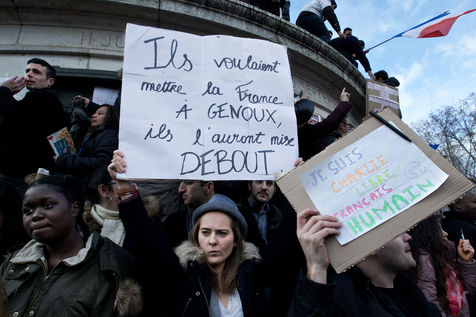 Ils voulaient
mettre la France
À GENOUX,
ils l'auront mise
DEBOUT
JE SUIS
CHARLIE
LIBRE
FRANÇAIS
HUMAIN